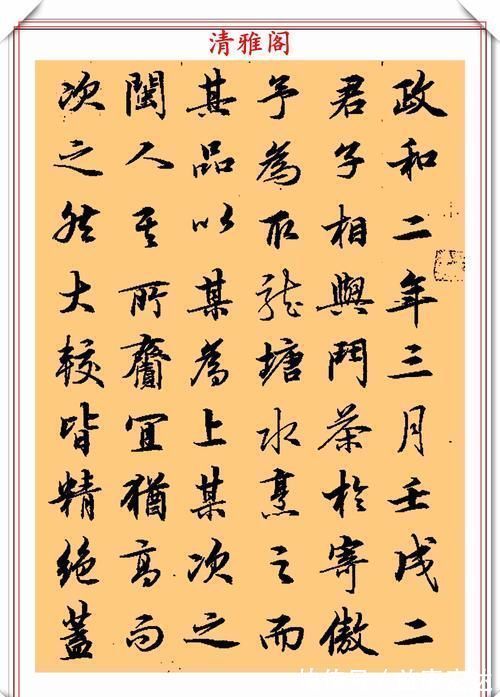 清雅阁
政和二年三月壬戌二
君子相與鬥茶於寄傲
予為取龍塘水烹之而
其品以某為上某次之
閩人其所齎宜猶高而
次之然大較皆精絕蓋